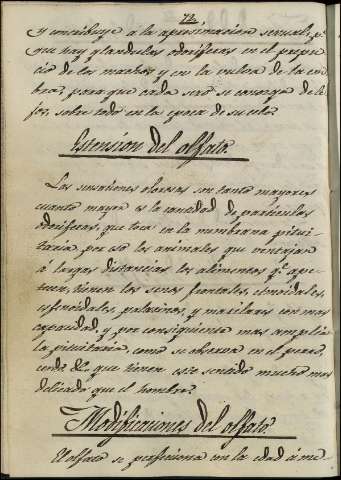 72.
y contribuye a la aproximacion sexual, pr.
que hay glandulas odoriferas en el prepu-
cio de los machos y en la vulva de la em
bra, para que cada sexo se conozca de le-
jos, sobre todo en la epoca de su celo.
Estension del olfato.
Las sensaciones olorosas son tanto mayores
cuanto mayor es la cantidad de particulas
odoriferas, que toca en la membrana pitui-
taria, por eso los animales que ventean
a largas distancias los alimentos qe. ape-
tecen, tienen los senos frontales, etmoidales,
esfenoidales, palatinos, y maxilares con mas
capacidad, y por consiguiente mas amplia
la pituitaria, como se observa en el perro,
cerdo &c. que tienen este sentido mucho mas
delicado que el hombre.
Modificaciones del olfato.
El olfato se perfecciona en la edad á me-